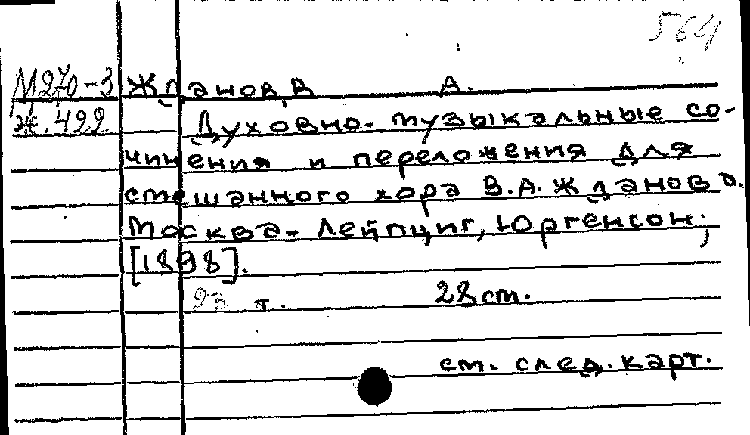 564
М270-3 Жданов, В А.
Ж.422 Духовно-музыкальные со-
чинения и переложения для
смешанного хора В.А. Жданова.
Москва-Лейпциг, Юргенсон;
[1898].
т. 28 cm.
см. след. карт.